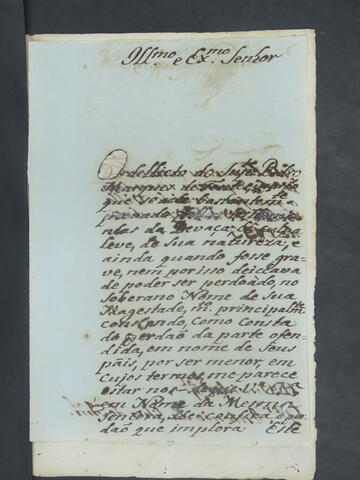 Ill.mo e Ex.mo Senhor
O dellicto do Sup.te Pedro
Marques de
que se acha bastantem.te
provado
nhas da Devaça:
leve, de sua natureza, e
ainda quando fosse gra-
ve, nem por isso deichava
de poder ser perdoado, no
Soberano Nome de Sua
Magestade, m.to principalm.te
constando, como consta
do perdaõ da parte ofen-
dida, em nome de seus
páis, por ser menor, em
cujos termos, me parece
estar nos
em Nome da Mesma
Senhora, o per-
daõ que implora. Este